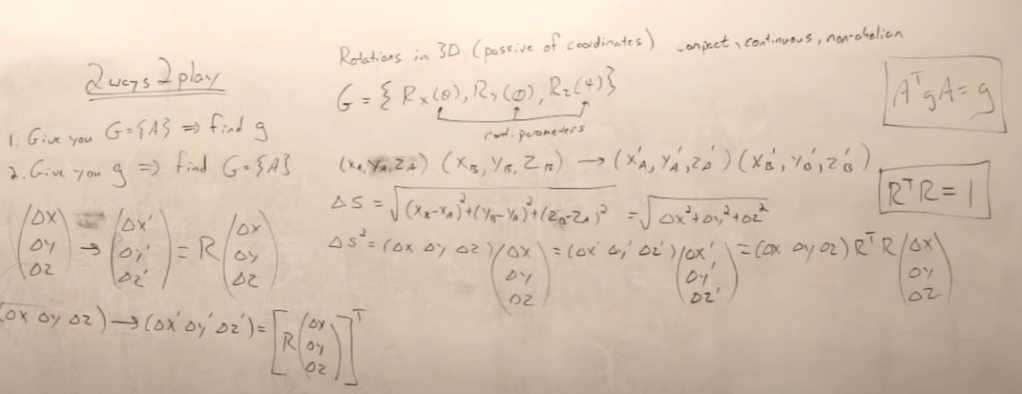 2 ways 2 play
1. Give you G={A} ⇒ find g
2. Give you g ⇒ find G={A}
(Δx Δy Δz) → (Δx' Δy' Δz') = R (Δx Δy Δz)
(Δx Δy Δz) → (Δx' Δy' Δz') = [R (Δx Δy Δz)]^T
Rotations in 3D (passive of coordinates) compact, continuous, non-abelian
G = { R_x(θ), R_y(∅), R_z(ψ) }
parameters
(x_A, y_A, z_A) (x_B, y_B, z_B) → (x'_A, y'_A, z'_A) (x'_B, y'_B, z'_B)
ΔS = √((x_B-x_A)²+(y_B-y_A)²+(z_B-z_A)²) = √(Δx²+Δy²+Δz²)
ΔS² = (Δx Δy Δz) (Δx Δy Δz) = (Δx' Δy' Δz') (Δx' Δy' Δz') = (Δx Δy Δz) R^T R (Δx Δy Δz)
A^T g A = g
R^T R = 1